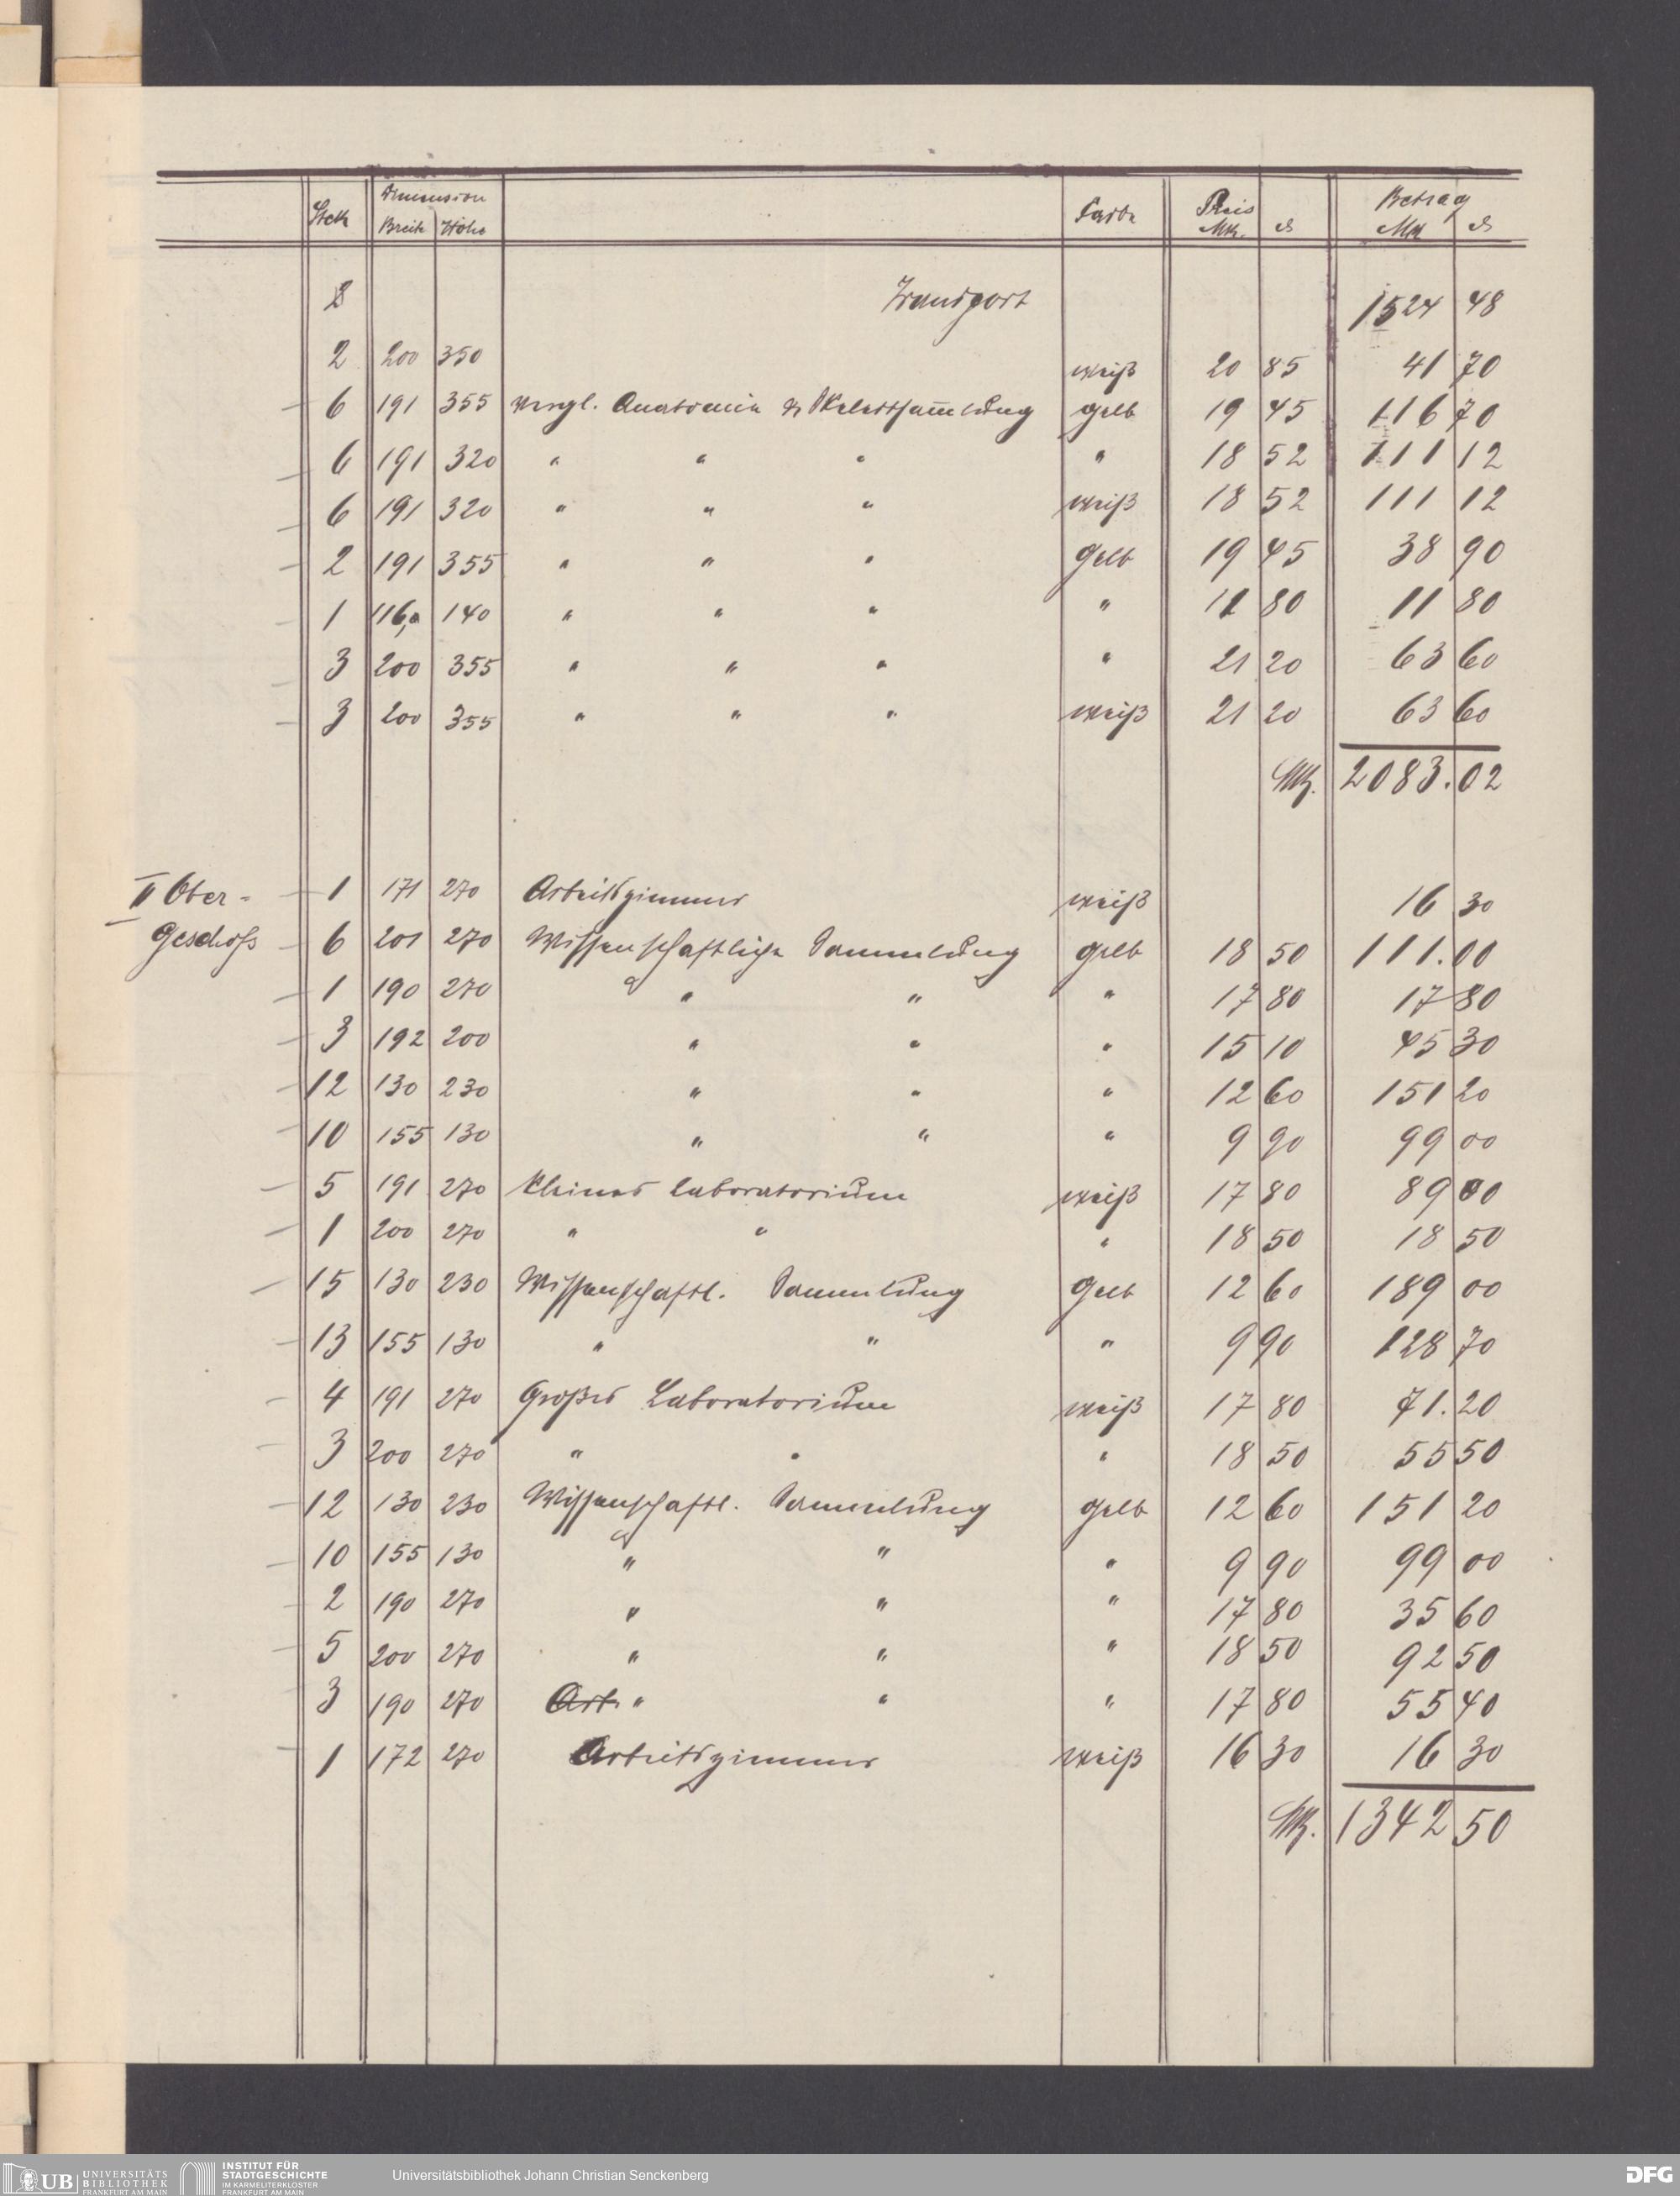 Dimension Preis Betrag
Stck Breite Höhe Farbe Mk. ₰ Mk ₰
Transport 1524 48
2 200 350 weiß 20 85 41 70
6 191 355 Vergl. Anatomie & Skelettsam̅lung gelb 19 45 116 70
6 191 320 " " " " 18 52 111 12
6 191 320 " " " weiß 18 52 111 12
2 191 355 " " " gelb 19 45 38 90
1 116, 140 " " " " 11 80 11 80
3 200 355 " " " " 21 20 63 60
3 200 355 " " " weiß 21 20 63 60
Mk. 2083.02
II Ober- 1 171 270 Arbeitszimmer weiß 16 30
Geschoß 6 201 270 Wissenschaftliche Sammlung gelb 18 50 111.00
1 190 270 " " " 17 80 17 80
3 192 200 " " " 15 10 45 30
12 130 230 " " " 12 60 151 20
10 155 130 " " " 9 90 99 00
5 191 270 Kleines Laboratorium weiß 17 80 89 00
1 200 270 " " " 18 50 18 50
15 130 230 Wissenschaftl. Sammlung gelb 12 60 189 00
13 155 130 " " " 9 90 128 70
4 191 270 Großes Laboratorium weiß 17 80 71.20
3 200 270 " " " 18 50 55 50
12 130 230 Wissenschaftl. Sammlung gelb 12 60 151 20
10 155 130 " " " 9 90 99 00
2 190 270 " " " 17 80 35 60
5 200 270 " " " 18 50 92 50
3 190 270 Arb. " " " 17 80 55 40
1 172 270 Arbeitszimmer weiß 16 30 16 30
Mk. 1342 50
UB UNIVERSITÄTS
BIBLIOTHEK
FRANKFURT AM MAIN
INSTITUT FÜR
STADTGESCHICHTE
IM KARMELITERKLOSTER
FRANKFURT AM MAIN
Universitätsbibliothek Johann Christian Senckenberg
DFG